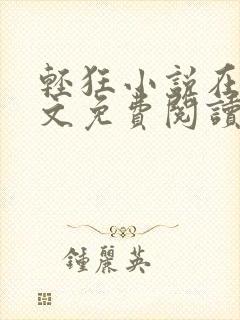 輕狂小說在
文免費閱讀
鍾麗英